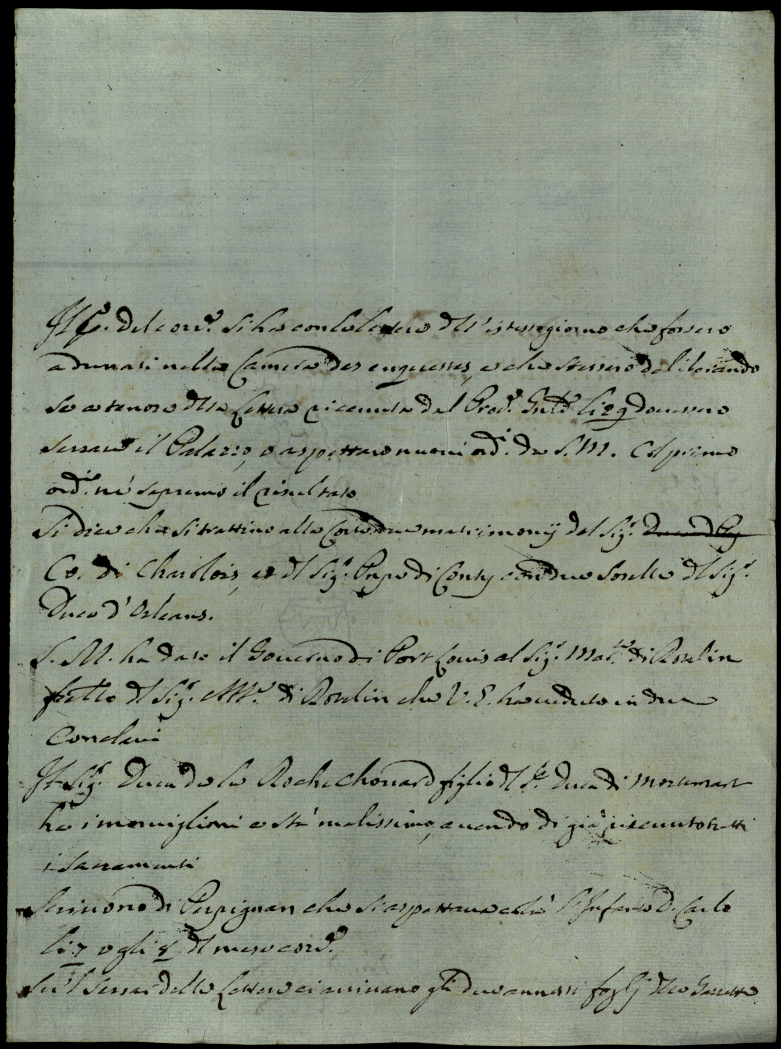 del cor.e si ha con la lettera dell'istesso giorno che fossero
adunati nella Camera des enquestes, e che stessero deliberando
se a tenore della lettera ricevuta dal dovessero
serrare il Palazzo, o aspettare nuovi ord.i da S. M. Col primo
ord.o ne sapremo il risultato
Si dice che si trattino alla Corte due matrimonij del Sig.r
Co. di Charlois, e del Sig.r Pnpe di Conty con due sorelle del Sig.r
Duca d'Orleans.
S. M. ha dato il Governo di Port Louis al Sig.r Mar. di Roselin
frello del Sig.r di Roselin che V. E. ha veduto in due
Conclavi
Il Sig.r Duca de la Rochechouard figlio del S.r Duca di Mortemart
ha i morviglioni e stà malissimo, avendo di già ricevuto tutti
i sacramenti
Scrivono di Perpignan che si aspettava colà l'Infante D. Carlo
li 7 o gli 8 del mese cor.e
Sul serrar della lettera ci arrivano gli due annessi fogli della Gazzetta